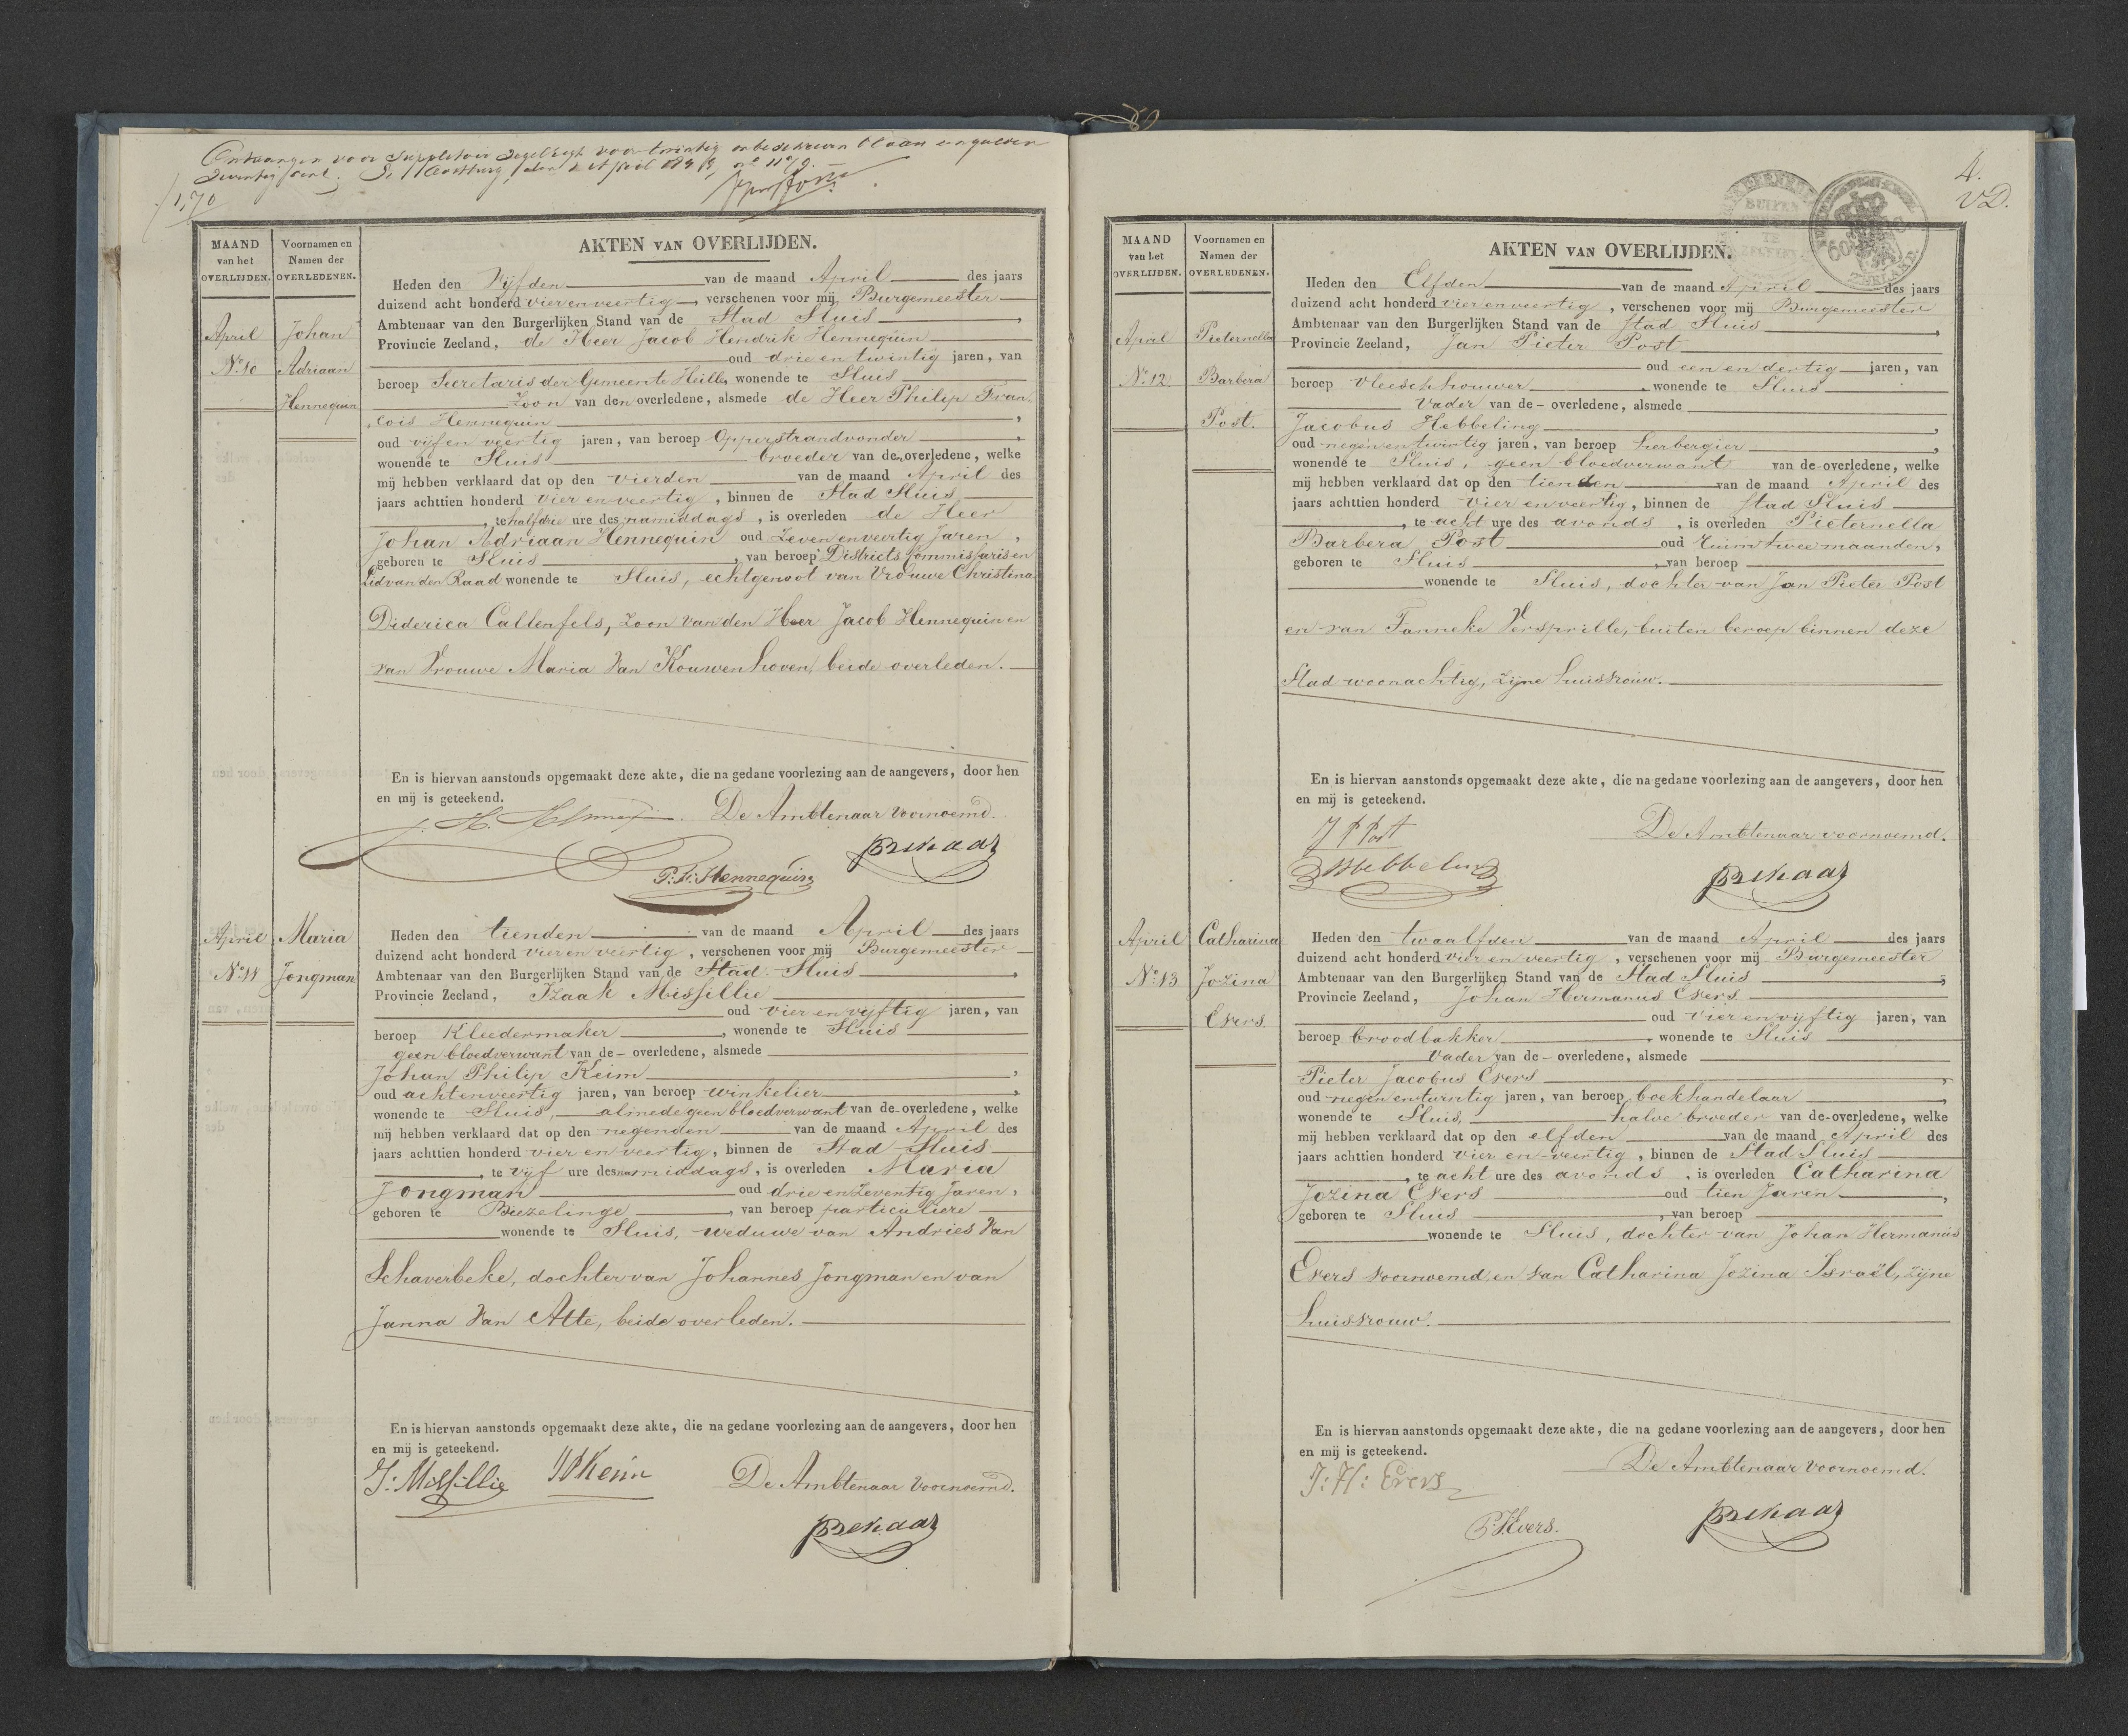 Ontvangen voor suppletoir zegelregt voor twintig onbeschreven bladen een gulden
zeventig cent. Te Oostburg den 2 April 184
1,70
MAAND
van het
OVERLIJDEN.
Voornamen en
Namen der
OVERLEDENEN.
AKTEN VAN OVERLIJDEN.
April
No. 10
Johan
Adriaan
Hennequin
Heden den Vijfden van de maand April des jaars
duizend acht honderd vier en veertig, verschenen voor mij Burgemeester
Ambtenaar van den Burgerlijken Stand van de Stad Sluis,
Provincie Zeeland, de Heer Jacob Hendrik Hennequin
oud drie en twintig jaren, van
beroep Secretaris der Gemeente Heille, wonende te Sluis
Zoon van den overledene, alsmede de Heer Philip Fran-
cois Hennequin,
oud vijf en veertig jaren, van beroep Opperstrandvonder,
wonende te Sluis broeder van den overledene, welke
mij hebben verklaard dat op den vierden van de maand April des
jaars achttien honderd vier en veertig, binnen de Stad Sluis
, te half drie ure des namiddags, is overleden de Heer
Johan Adriaan Hennequin oud Zeven en veertig Jaren,
geboren te Sluis, van beroep Districts Commissaris en
Lid van den Raad wonende te Sluis, echtgenoot van Vrouwe Christina
Diderica Callenfels, Zoon van den Heer Jacob Hennequin en
van Vrouwe Maria Van Kouwenhoven, beide overleden.
En is hiervan aanstonds opgemaakt deze akte, die na gedane voorlezing aan de aangevers, door hen
en mij is geteekend. De Ambtenaar voornoemd.
P: F: Hennequin
April
No. 11
Maria
Jongman
Heden den tienden van de maand April des jaars
duizend acht honderd vier en veertig, verschenen voor mij Burgemeester
Ambtenaar van den Burgerlijken Stand van de Stad Sluis,
Provincie Zeeland, Izaak Missillie
oud vier en vijftig jaren, van
beroep Kleedermaker, wonende te Sluis
geen bloedverwant van de - overledene, alsmede
Johan Philip Keim,
oud acht en veertig jaren, van beroep winkelier,
wonende te Sluis, almede geen bloedverwant van de overledene, welke
mij hebben verklaard dat op den negenden van de maand April des
jaars achttien honderd vier en veertig, binnen de Stad Sluis
, te vijf ure des namiddags, is overleden Maria
Jongman oud drie en Zeventig Jaren,
geboren te Biezelinge, van beroep particuliere
wonende te Sluis, weduwe van Andries Van
Schaverbeke, dochter van Johannes Jongman en van
Janna Van Atte, beide overleden.
En is hiervan aanstonds opgemaakt deze akte, die na gedane voorlezing aan de aangevers, door hen
en mij is geteekend.
I: Missillie JPKeim De Ambtenaar voornoemd.
4.
VD.
MAAND
van het
OVERLIJDEN.
Voornamen en
Namen der
OVERLEDENEN.
AKTEN VAN OVERLIJDEN.
April
No. 12.
Pieternella
Barbera
Post.
Heden den Elfden van de maand April des jaars
duizend acht honderd vier en veertig, verschenen voor mij Burgemeester
Ambtenaar van den Burgerlijken Stand van de Stad Sluis,
Provincie Zeeland, Jan Pieter Post
oud een en dertig jaren, van
beroep vleeschhouwer, wonende te Sluis
Vader van de - overledene, alsmede
Jacobus Hebbeling,
oud negen en twintig jaren, van beroep herbergier,
wonende te Sluis, geen bloedverwant van de - overledene, welke
mij hebben verklaard dat op den tienden van de maand April des
jaars achttien honderd vier en veertig, binnen de Stad Sluis
, te acht ure des avonds, is overleden Pieternella
Barbera Post oud ruim twee maanden,
geboren te Sluis, van beroep
wonende te Sluis, dochter van Jan Pieter Post
en van Tanneke Versprille, buiten beroep binnen deze
Stad woonachtig, zijne huisvrouw.
En is hiervan aanstonds opgemaakt deze akte, die na gedane voorlezing aan de aangevers, door hen
en mij is geteekend.
De Ambtenaar voornoemd.
J P Post
April
No. 13
Catharina
Jozina
Evers.
Heden den twaalfden van de maand April des jaars
duizend acht honderd vier en veertig, verschenen voor mij Burgemeester
Ambtenaar van den Burgerlijken Stand van de Stad Sluis,
Provincie Zeeland, Johan Hermanus Evers
oud vier en vijftig jaren, van
beroep broodbakker, wonende te Sluis
Vader van de - overledene, alsmede
Pieter Jacobus Evers,
oud negen en twintig jaren, van beroep boekhandelaar,
wonende te Sluis, halve broeder van de - overledene, welke
mij hebben verklaard dat op den elfden van de maand April des
jaars achttien honderd vier en veertig, binnen de Stad Sluis
, te acht ure des avonds, is overleden Catharina
Jozina Evers oud tien Jaren,
geboren te Sluis, van beroep
wonende te Sluis, dochter van Johan Hermanus
Evers voornoemd, en van Catharina Jozina Israël, zijne
huisvrouw.
En is hiervan aanstonds opgemaakt deze akte, die na gedane voorlezing aan de aangevers, door hen
en mij is geteekend.
De Ambtenaar voornoemd.
J: H: Evers
P. J. Evers.